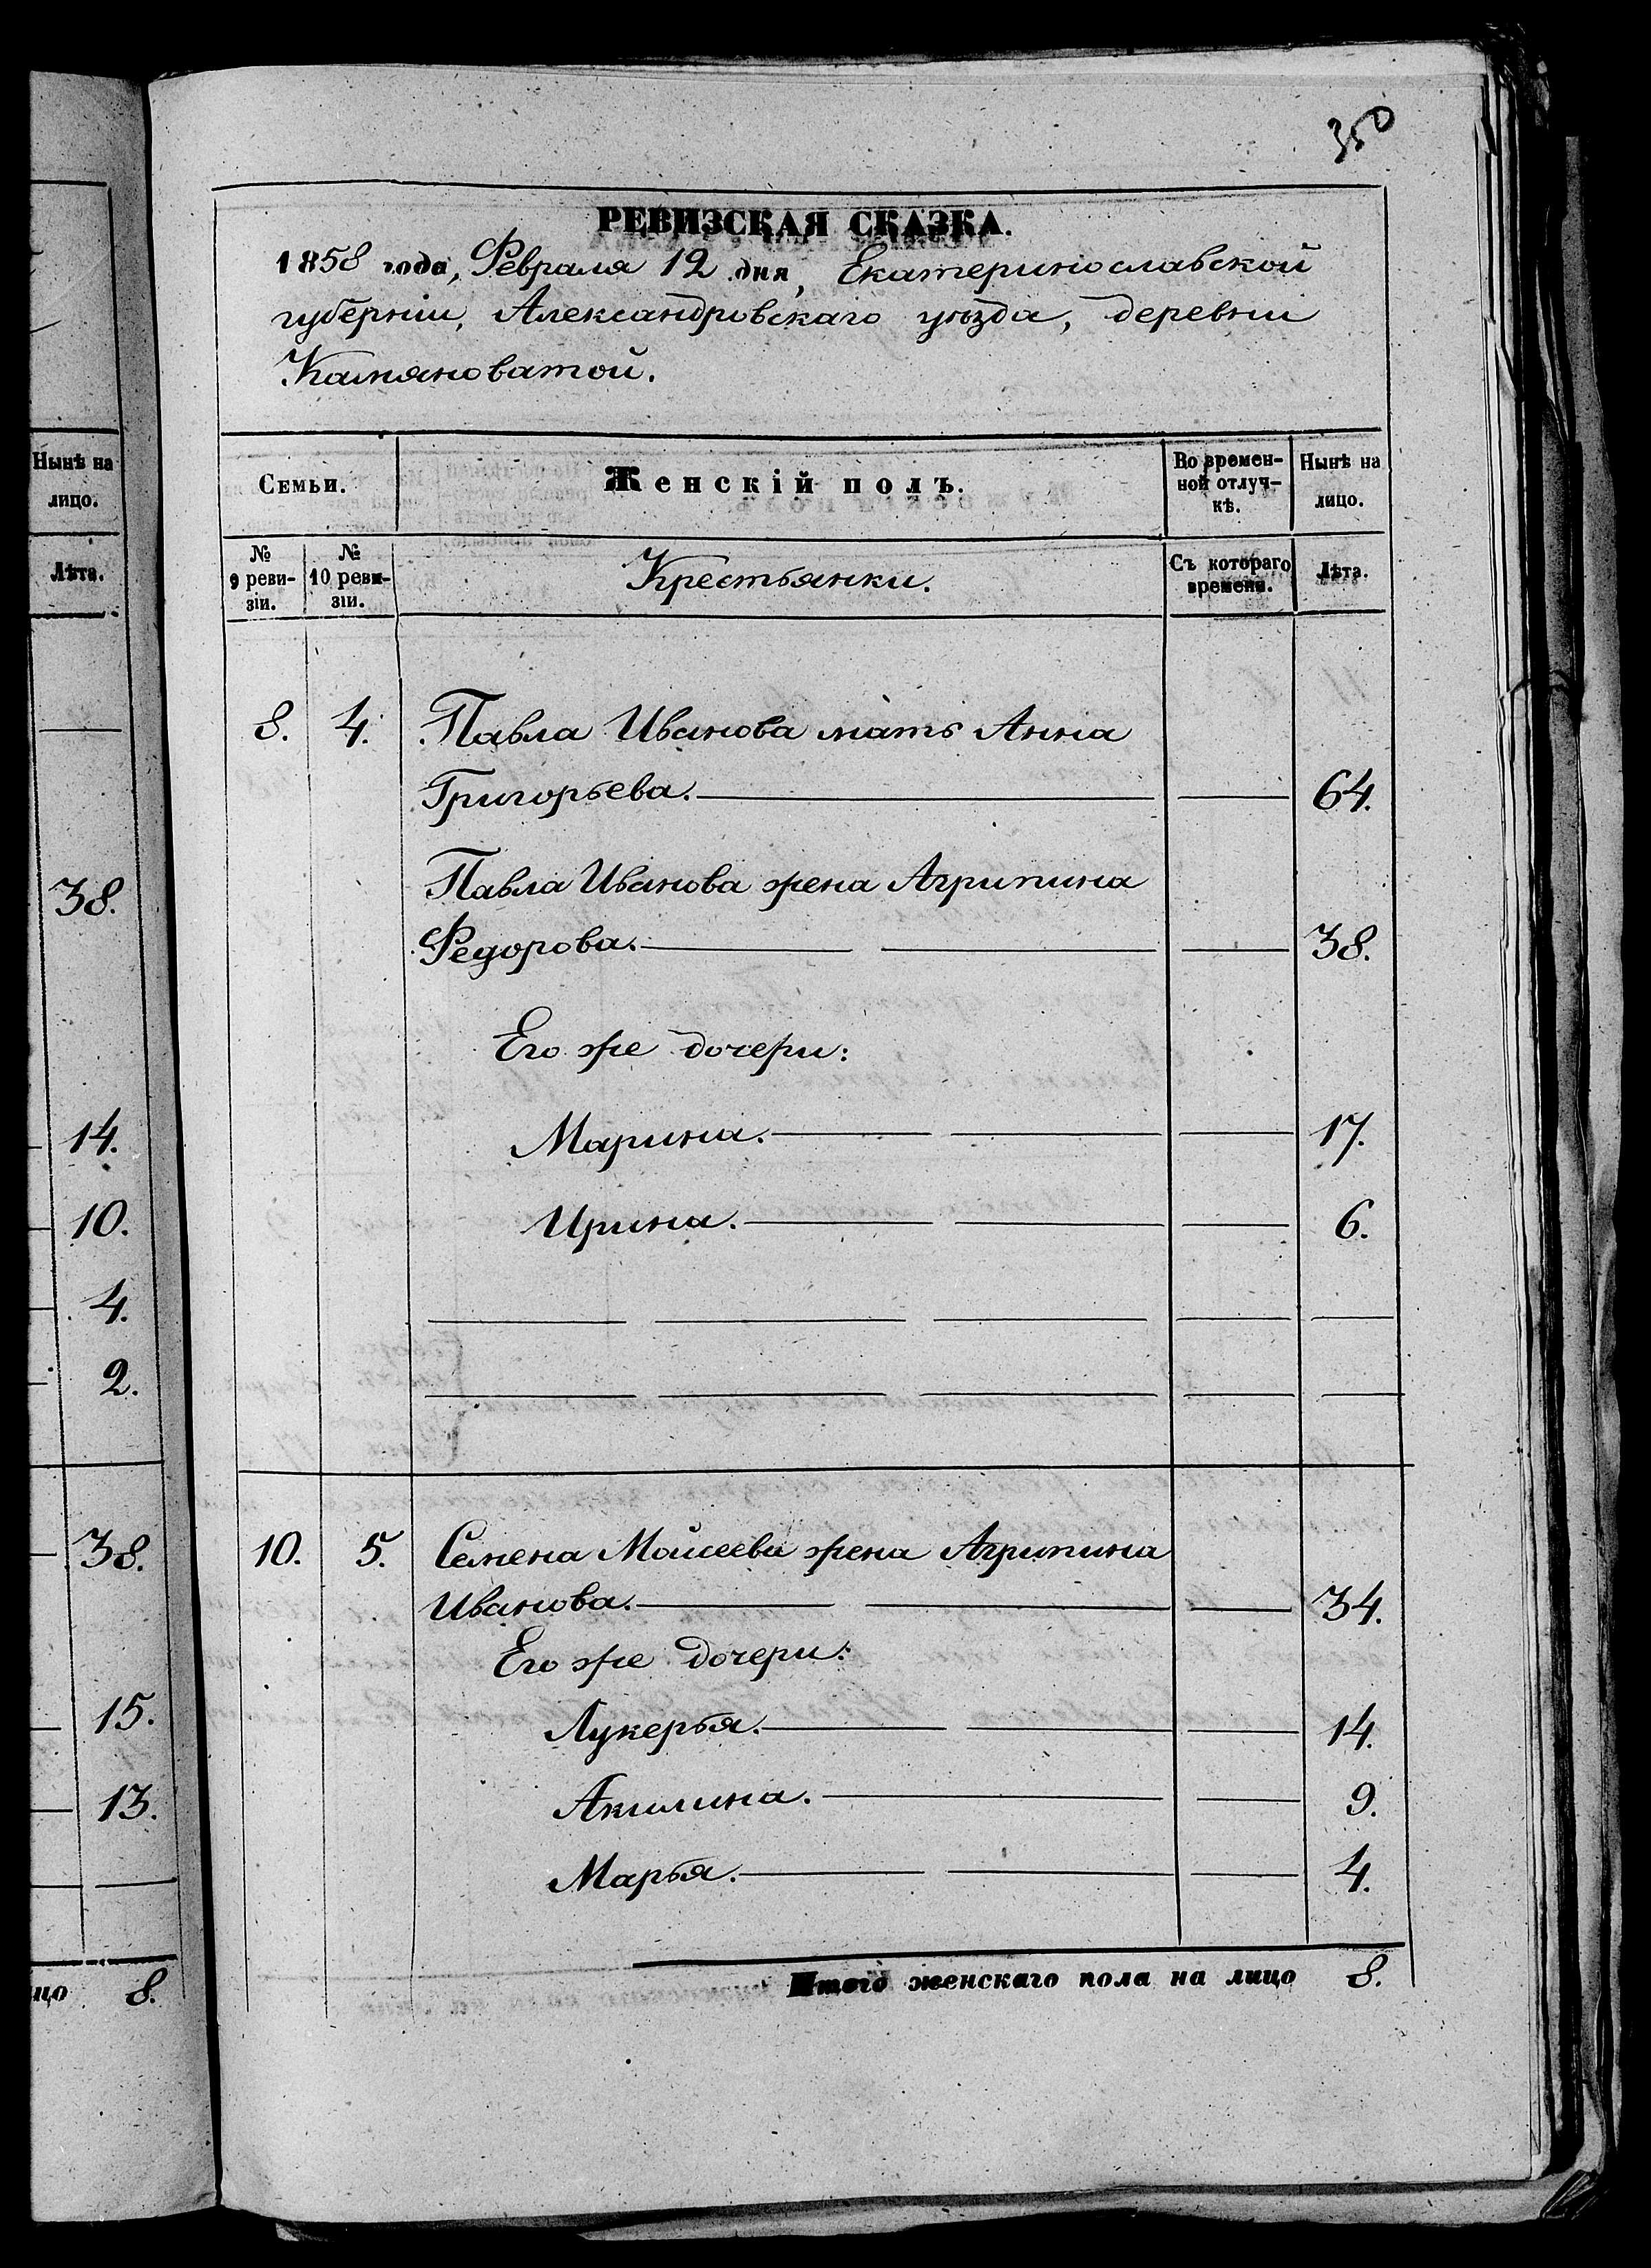 350
РЕВИЗСКАЯ СКАЗКА.
1858 года, Февраля 12 дня, Екатеринославской
губернiи, Александровскаго уѣзда, деревни
Камяноватой.
Нынѣ на
лицо.
Лѣта.
38.
14.
10.
4.
2.
38.
15.
13.
цо 8.
Семьи.
Женскій полъ.
Во времен-
ной отлуч-
кѣ.
Нынѣ на
лицо.
№
9 реви-
зіи.
№
10 реви-
зіи.
Крестьянки.
Съ котораго
времени.
Лѣта.
8. 4. Павла Иванова мать Анна
Григорьева. 64.
Павла Иванова жена Агрипина
Федорова. 38.
Его же дочери:
Марина. 17.
Ирина. 6.
10. 5. Семена Моисеева жена Агрипина
Иванова. 34.
Его же дочери:
Лукерья. 14.
Акилина. 9.
Марья. 4.
Итого женскаго пола на лицо 8.